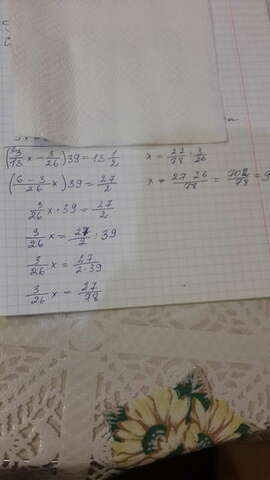 (3/13 x - 3/26) 39 = 13 1/2
(6 - 3/26 x) 39 = 27/2
3/26 x · 39 = 27/2
3/26 x = 27/2 : 39
3/26 x = 27/2·39
3/26 x = 27/78
x = 27/78 : 3/26
x = 27 26/78 = 702/78 = 9